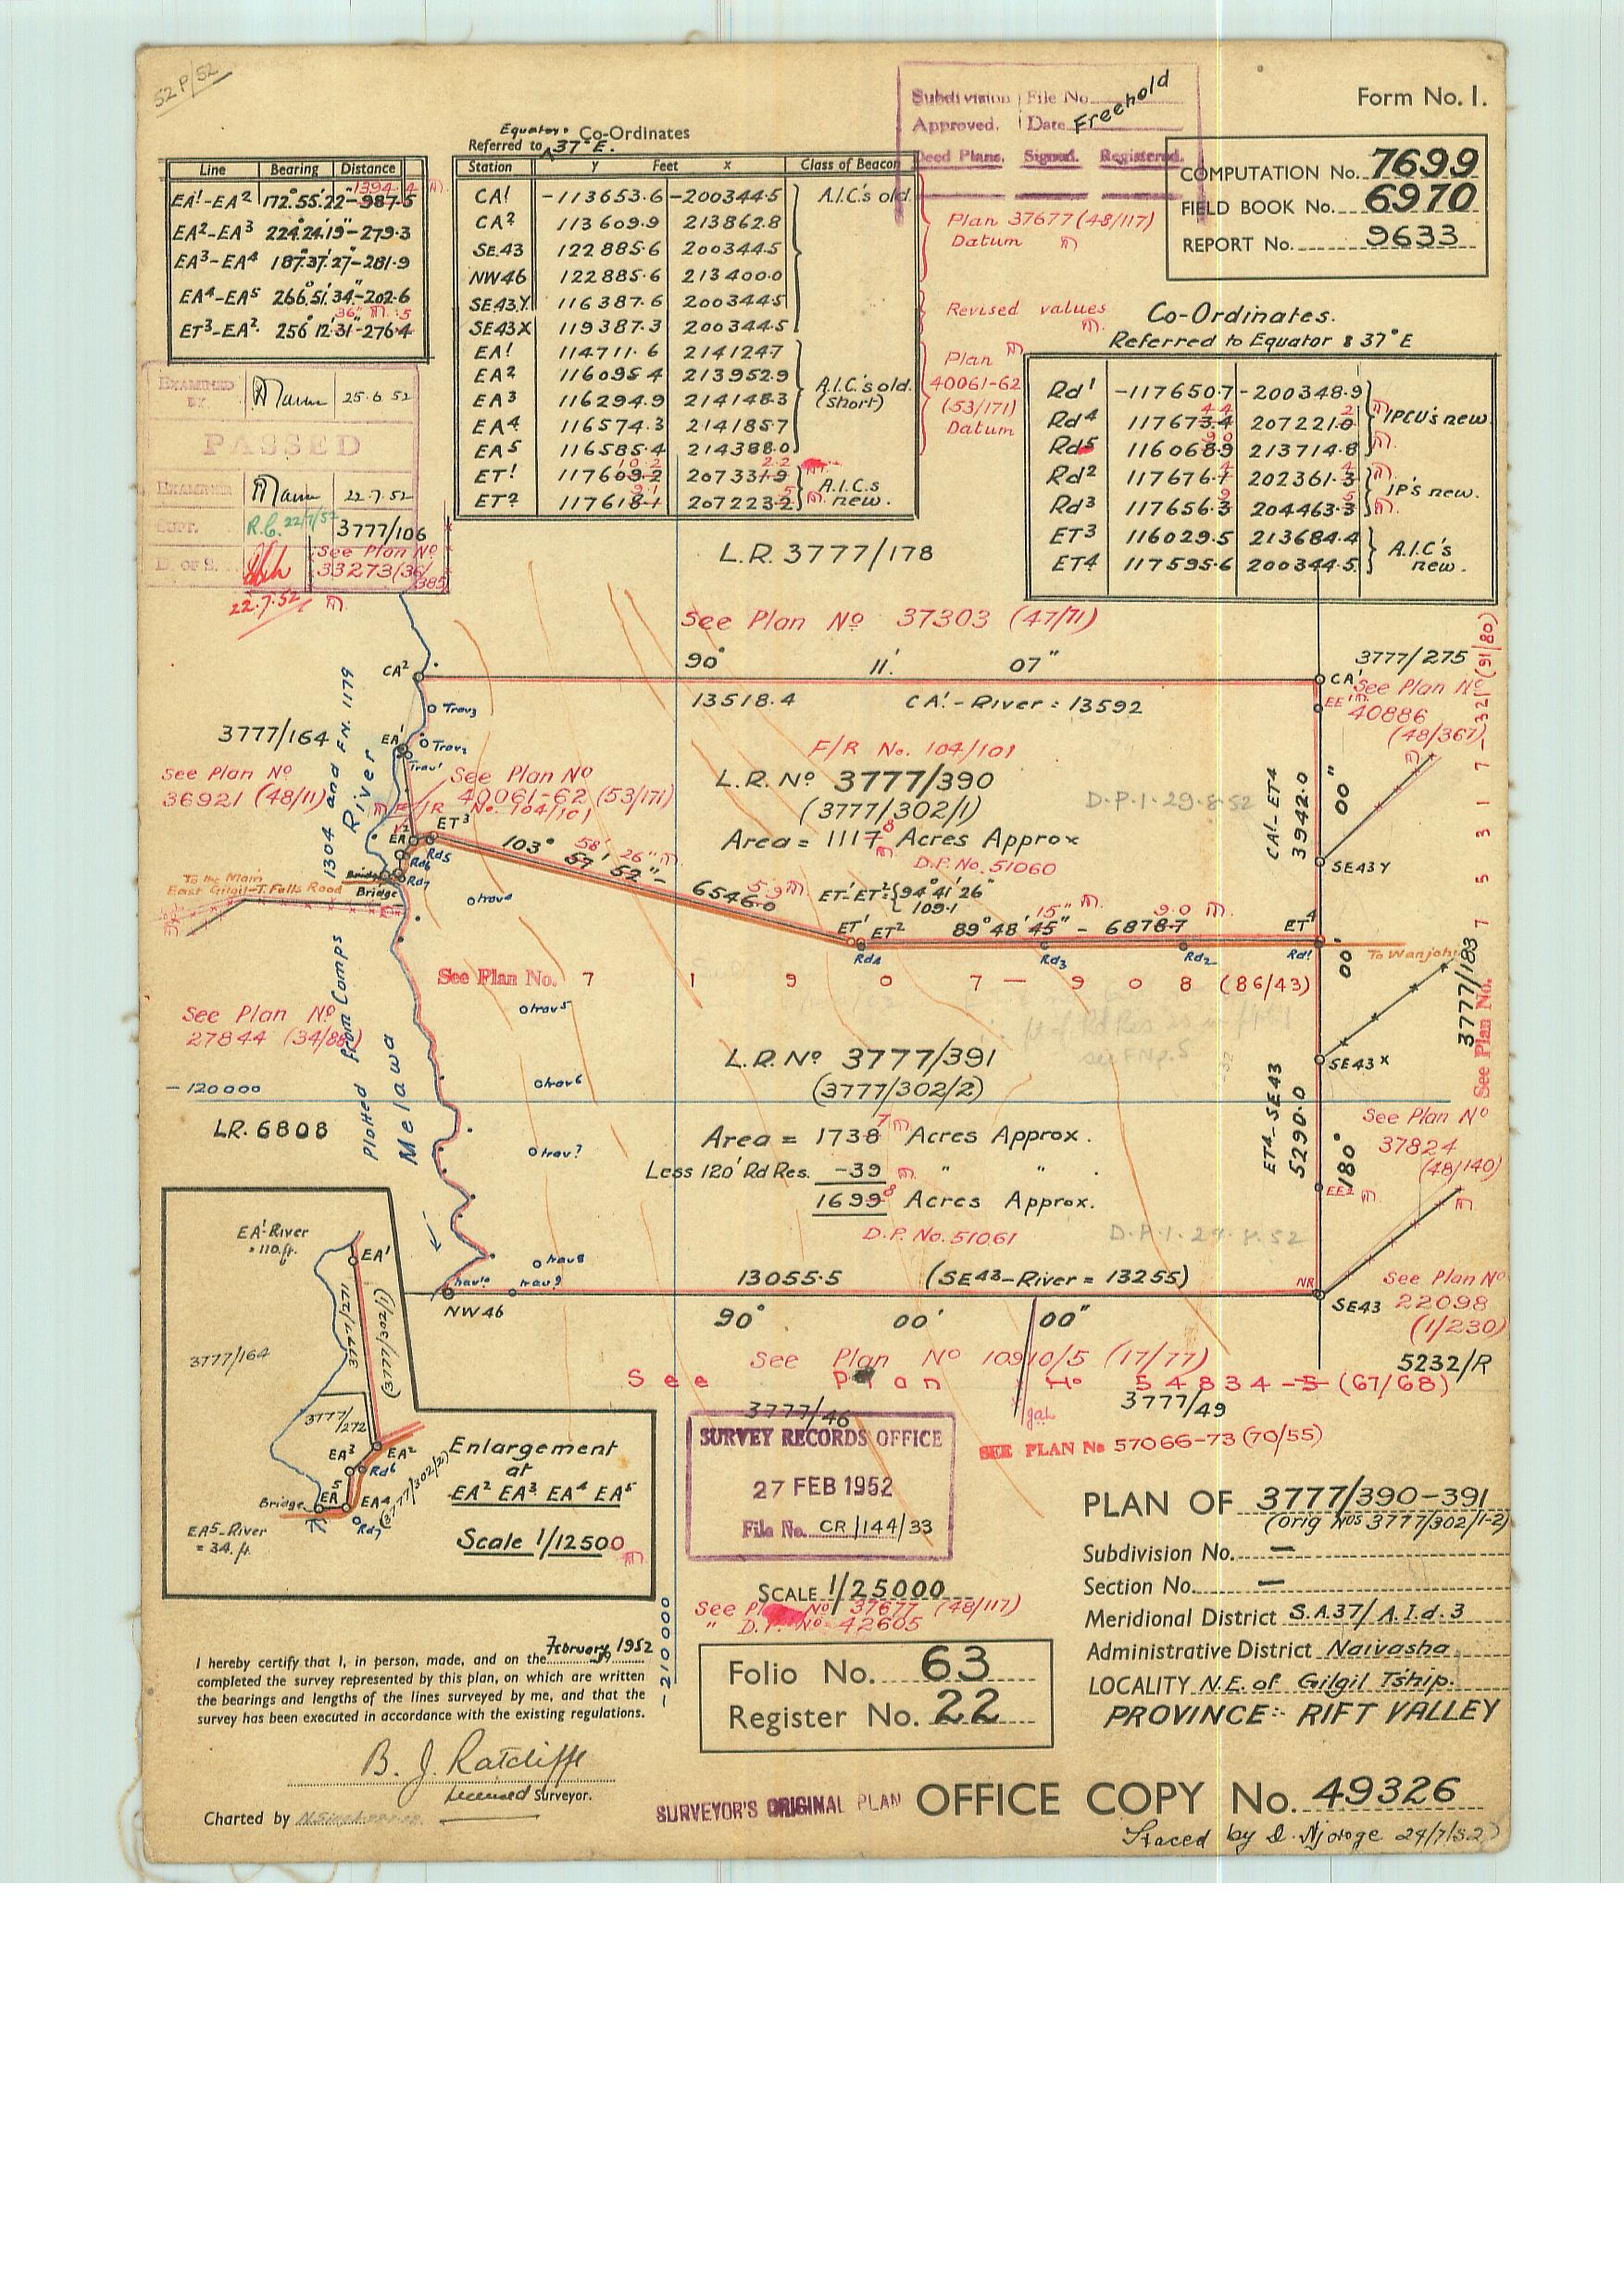 52 P/52
Form No. 1.
Subdivision File No. Freehold
Approved. Date
Deed Plans. Signed. Registered.
COMPUTATION No. 7699
FIELD BOOK No. 6970
REPORT No. 9633
Line Bearing Distance
EA1-EA2 172.55.22-987.5 1394.4
EA2-EA3 224.24.19-279.3
EA3-EA4 187.37.27-281.9
EA4-EA5 266.51.34-202.6
36" .5
ET3-EA2. 256 12.31-276.4
Equator. Co-Ordinates
Referred to 37°E.
Station y Feet x Class of Beacon
CA1 -113653.6 -200344.5 A.I.C's old.
CA2 113609.9 213862.8
SE43 122885.6 200344.5
NW46 122885.6 213400.0
SE43Y 116387.6 200344.5
SE43X 119387.3 200344.5
EA1 114711.6 214124.7
EA2 116095.4 213952.9
EA3 116294.9 214148.3 A.I.C's old. (short)
EA4 116574.3 214185.7
EA5 116585.4 214388.0
ET1 117609.2 207331.9 A.I.C.s
ET2 117618.1 207223.2 new.
Plan 37677 (48/117)
Datum
Revised values
Plan
40061-62
(53/171)
Datum
Co-Ordinates.
Referred to Equator & 37°E
Rd1 -117650.7 -200348.9
Rd4 117673.4 207221.0 IPCU's new
Rd5 116068.9 213714.8
Rd2 117676.1 202361.3 IP's new.
Rd3 117656.3 204463.3
ET3 116029.5 213684.4 A.I.C's
ET4 117595.6 200344.5 new.
EXAMINED BY 25.6.52
PASSED
EXAMINER 22.7.52
SUPT. R.C. 22/7/52
D. OF S.
22.7.52
3777/106
See Plan No
33273 (36/385)
L.R. 3777/178
See Plan No 37303 (47/71)
90° 11' 07"
13518.4 CA1-River = 13592
CA2
CA1
3777/275
See Plan No
40886
(48/367)
EE1
Trav3
3777/164
EA1
Trav2
Trav1
See Plan No
36921 (48/11)
1304 and F.N. 1179
River
See Plan No
40061-62 (53/171)
F/R No. 104/101
F/R No. 104/101
L.R. No 3777/390
(3777/302/1)
Area = 1117 8 Acres Approx
D.P. No. 51060
D.P.1.29.8.52
CA1-ET4
3942.0
00"
SE43Y
EA2
ET3
Rd5
Rd6
Rd7
Bridge
Bridge
103° 57' 52"- 6546.0
58' 26" 5.9
ET1-ET2= 94°41'26"
109.1
ET1 ET2
89°48'45" - 6878.7
15" 9.0
ET4
Rd4
Rd3
Rd2
Rd1
To Wanjohi
To the Main
East Gilgil-T. Falls Road
trav4
See Plan No. 7 1 9 0 7 - 9 0 8 (86/43)
trav5
00'
3777/183
See Plan No. 7 5 3 1 7 - 32 (91/80)
See Plan No
27844
Plotted From Comps
Melawa
L.R. No 3777/391
(3777/302/2)
see F.N p.5
SE43X
trav6
-120000
L.R. 6808
trav7
Area = 1738 7 Acres Approx.
Less 120' Rd Res. -39 " " .
1699 8 Acres Approx.
D.P. No. 51061
ET4-SE43
5290.0
180°
See Plan No
37824
(48/140)
EE2
trav8
trav10 trav9
NW46
13055.5 (SE43-River = 13255)
90° 00' 00"
NR
SE43
See Plan No
22098
(1/230)
5232/R
See Plan No 10910/5 (17/77)
See Plan No 54834-5 (67/68)
3777/46
3777/49
SEE PLAN No 57066-73 (70/55)
EA1-River
= 110.ft.
EA1
3777/271
(3777/302/1)
3777/164
3777/272
EA3
EA2
Rd6
EA5
EA4
Rd7
(3777/302/2)
Bridge
EA5-River
= 34.ft.
Enlargement
at
EA2 EA3 EA4 EA5
Scale 1/12500
SURVEY RECORDS OFFICE
27 FEB 1952
File No. CR/144/33
SCALE 1/25000
See Plan No 37677 (48/117)
" D.P. No 42605
-210000
Folio No. 63
Register No. 22
PLAN OF 3777/390-391
(orig Nos 3777/302/1-2)
Subdivision No. —
Section No. —
Meridional District S.A.37/A.I.d.3
Administrative District Naivasha
LOCALITY N.E. of Gilgil T'ship.
PROVINCE:- RIFT VALLEY
I hereby certify that I, in person, made, and on the February 1952
completed the survey represented by this plan, on which are written
the bearings and lengths of the lines surveyed by me, and that the
survey has been executed in accordance with the existing regulations.
B. J. Ratcliffe
Licensed Surveyor.
Charted by
SURVEYOR'S ORIGINAL PLAN
OFFICE COPY No. 49326
Traced by D. Njoroge 24/7/52